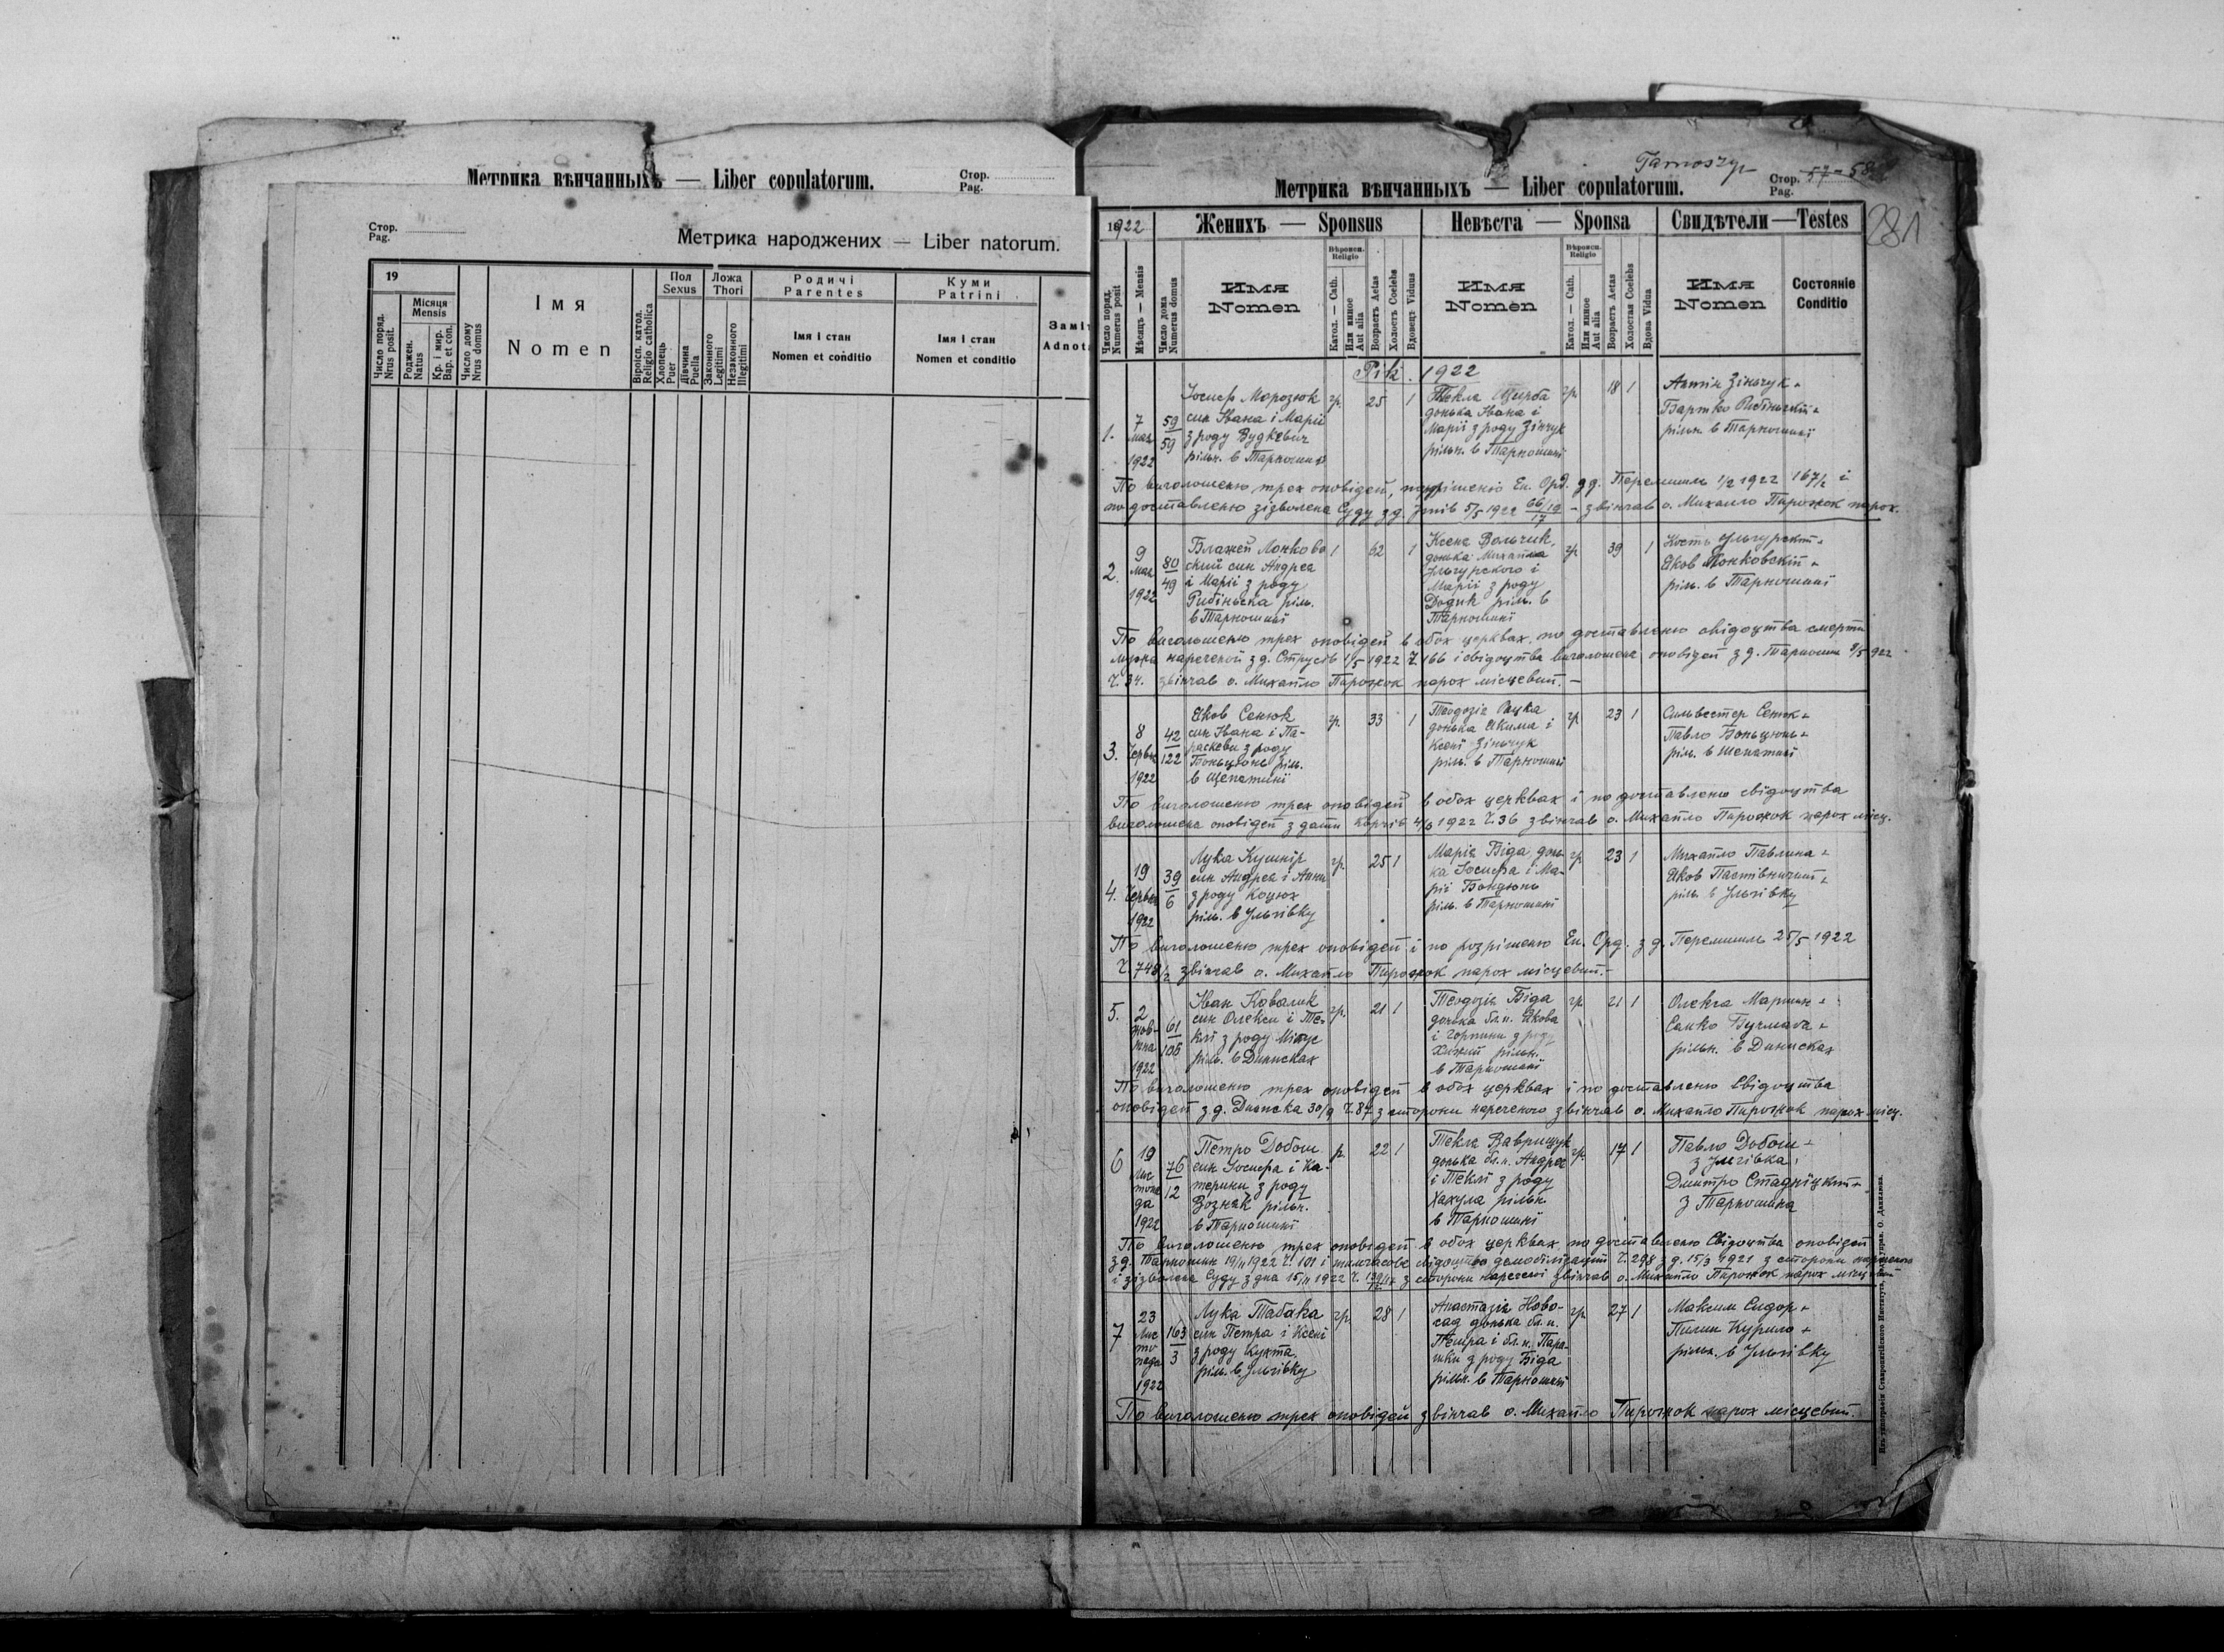 Метрика вѣнчанныхъ — Liber copulatorum.
Стор.
Pag.
Стор.
Pag.
Метрика народжених — Liber natorum.
19
Число поряд.
Nrus posit.
Місяця
Mensis
Роджен.
Natus
Кр. і мир.
Bap. et con.
Число дому
Nrus domus
Імя
Nomen
Віроісп. катол.
Religio catholica
Пол
Sexus
Хлопець
Puer
Дівчина
Puella
Ложа
Thori
Законного
Legitimi
Незаконного
Illegitimi
Родичі
Parentes
Імя і стан
Nomen et conditio
Куми
Patrini
Імя і стан
Nomen et conditio
Tarnoszyn
Метрика вѣнчанныхъ — Liber copulatorum.
Стор.
Pag.
57-58
281
1922
Женихъ — Sponsus
Невѣста — Sponsa
Свидѣтели — Testes
Число поряд.
Numerus posit
Мѣсяцъ — Mensis
Число дома
Numerus domus
Имя
Nomen
Вѣроисп.
Religio
Катол. — Cath.
Или инное
Aut alia
Возрастъ Aetas
Холостъ Coelebs
Вдовецъ Viduus
Имя
Nomen
Вѣроисп.
Religio
Катол. — Cath.
Или инное
Aut alia
Возрастъ Aetas
Холостая Coelebs
Вдова Vidua
Имя
Nomen
Состояніе
Conditio
Рік 1922
1.
7
мая
1922
59
59
Йосиф Морозюк
син Івана і Марії
з роду Будкевич
рільн. в Тарношині
гр. 25 1
Текля Щирба
донька Івана і
Марії з роду Зінчук
рільн. в Тарношині
гр 18 1
Антін Зінчук
Бартко
рільн. в Тарношині
По виголошеню трех оповідей, Еп. Орд. з д. Перемишль 1/2 1922 167/2 і
по доставленю зізволеня Суду з д. 5/5 1922 66/19 17 — звінчав о. Михайло Пирожок парох.
2.
9
мая
1922
80
49
Блажей Лонково
ский син Андрея
і Марії з роду
Рибіньска ріль.
в Тарношині
1 62 1
Ксеня Вольчик,
донька Михайла
Ульгурского і
Марії з роду
Додик ріль. в
Тарношині
гр 39 1
Кость Ульгурский
Яков Лонковский
ріль. в Тарношині
По виголошеню трех оповідей в обох церквах, по доставленю свідоцтва смерти
мужа нареченої з д. Струсів 1/5 1922 Ч. 166 і свідоцтва виголошеня оповідей з д. Тарношин 9/5 922
Ч. 34. звінчав о. Михайло Пирожок парох місцевий. —
3.
8
Червня
1922
42
122
Яков Сенюк
син Івана і Па-
раскеви з роду
Боньцюнь ріль.
в Щепятині
гр. 33 1
Теодозія Рацка
донька Якима і
Ксені Зінчук
ріль. в Тарношині
гр 23 1
Сильвестер Сенюк
Павло Боньцюнь
ріль. в Щепятині
По виголошеню трех оповідей в обох церквах і по доставленю свідоцтва
виголошеня оповідей з дати Корчів 4/6 1922 Ч. 36 звінчав о. Михайло Пирожок парох місц.
4.
19
Червня
1922
39
6
Лука Кушнір
син Андрея і Анни
з роду Коцюх
ріль. в Ульгівку
гр. 25 1
Марія Біда донь
ка Йосифа і Ма-
рії Бондюнь
ріль. в Тарношині
гр 23 1
Михайло Павлина
Яков Пастівничий
ріль. в Ульгівку
По виголошеню трех оповідей і по розрішеню Еп. Орд. з д. Перемишль 25/5 1922
Ч. 748/2 звінчав о. Михайло Пирожок парох місцевий. —
5.
2
жов-
тня
1922
61
106
Іван Ковалик
син Олекси і Те-
клі з роду Мікус
ріль. в Динисках
гр. 21 1
Теодозія Біда
донька бл.п. Якова
і Горпини з роду
Хижий рільн.
в Тарношині
гр 21 1
Олекса Марчин
Санко Бучмага
рільн. в Динисках
По виголошеню трех оповідей в обох церквах і по доставленю свідоцтва
оповідей з д. Дыниска 30/9 Ч. 87 з сторони нареченого звінчав о. Михайло Пирожок парох місц.
6
19
Лис
топа
да
1922
76
12
Петро Добош
син Йосифа і Ка-
терини з роду
Возняк рільн.
в Тарношині
гр. 22 1
Текля Ваврищук
донька бл.п. Андрея
і Теклі з роду
Хахула рільн.
в Тарношині
гр. 17 1
Павло Добош
з Ульгівка
Дмитро Стадніцкий
з Тарношина
По виголошеню трех оповідей в обох церквах по доставленю Свідоцтва оповідей
з д. Тарношин 19/11 1922 Ч. 101 і тимчасове свідоцтво демобілізації Ч. 298 з д. 15/3 1921 з сторони нареченого
і зізволеня Суду з дня 15/11 1922 з сторони нареченої звінчав о. Михайло Пирожок парох місцевий
7
23
Лис
то
пада
1922
163
3
Лука Табака
син Петра і Ксені
з роду Кухта
ріль. в Ульгівку
гр. 28 1
Анастазія Ново-
сад донька бл.п.
Петра і бл.п. Пара-
шки з роду Біда
рільн. в Тарношині
гр. 27 1
Максим Сидор
Пилип Курило
рільн. в Ульгівку
По виголошеню трех оповідей звінчав о. Михайло Пирожок парох місцевий.